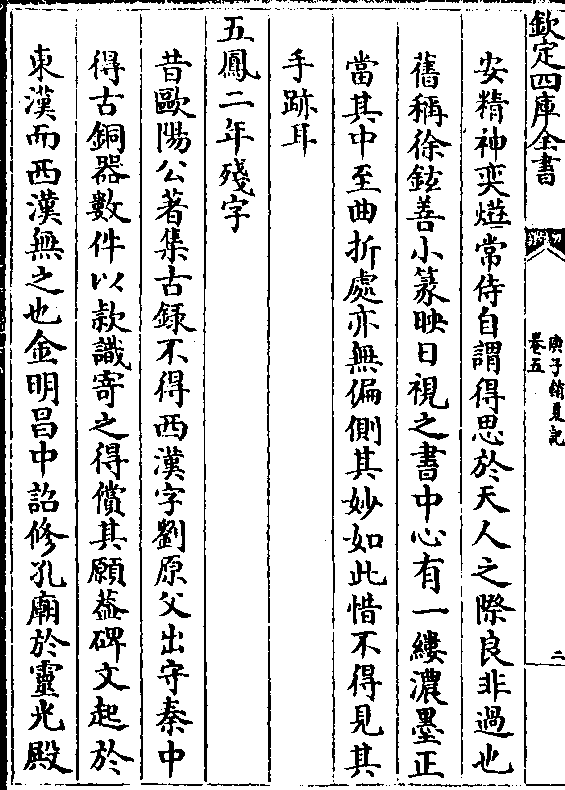 欽定四庫全書
庚子銷夏記
卷五
二
安精神奕燁常侍自謂得思於天人之際良非過也
舊稱徐鉉善小篆映日視之書中心有一縷濃墨正
當其中至曲折處亦無偏側其妙如此惜不得見其
手跡耳
五鳳二年殘字
昔歐陽公著集古録不得西漢字劉原父出守秦中
得古銅器數件以款識寄之得償其願葢碑文起於
東漢而西漢無之也金明昌中詔修孔廟於靈光殿